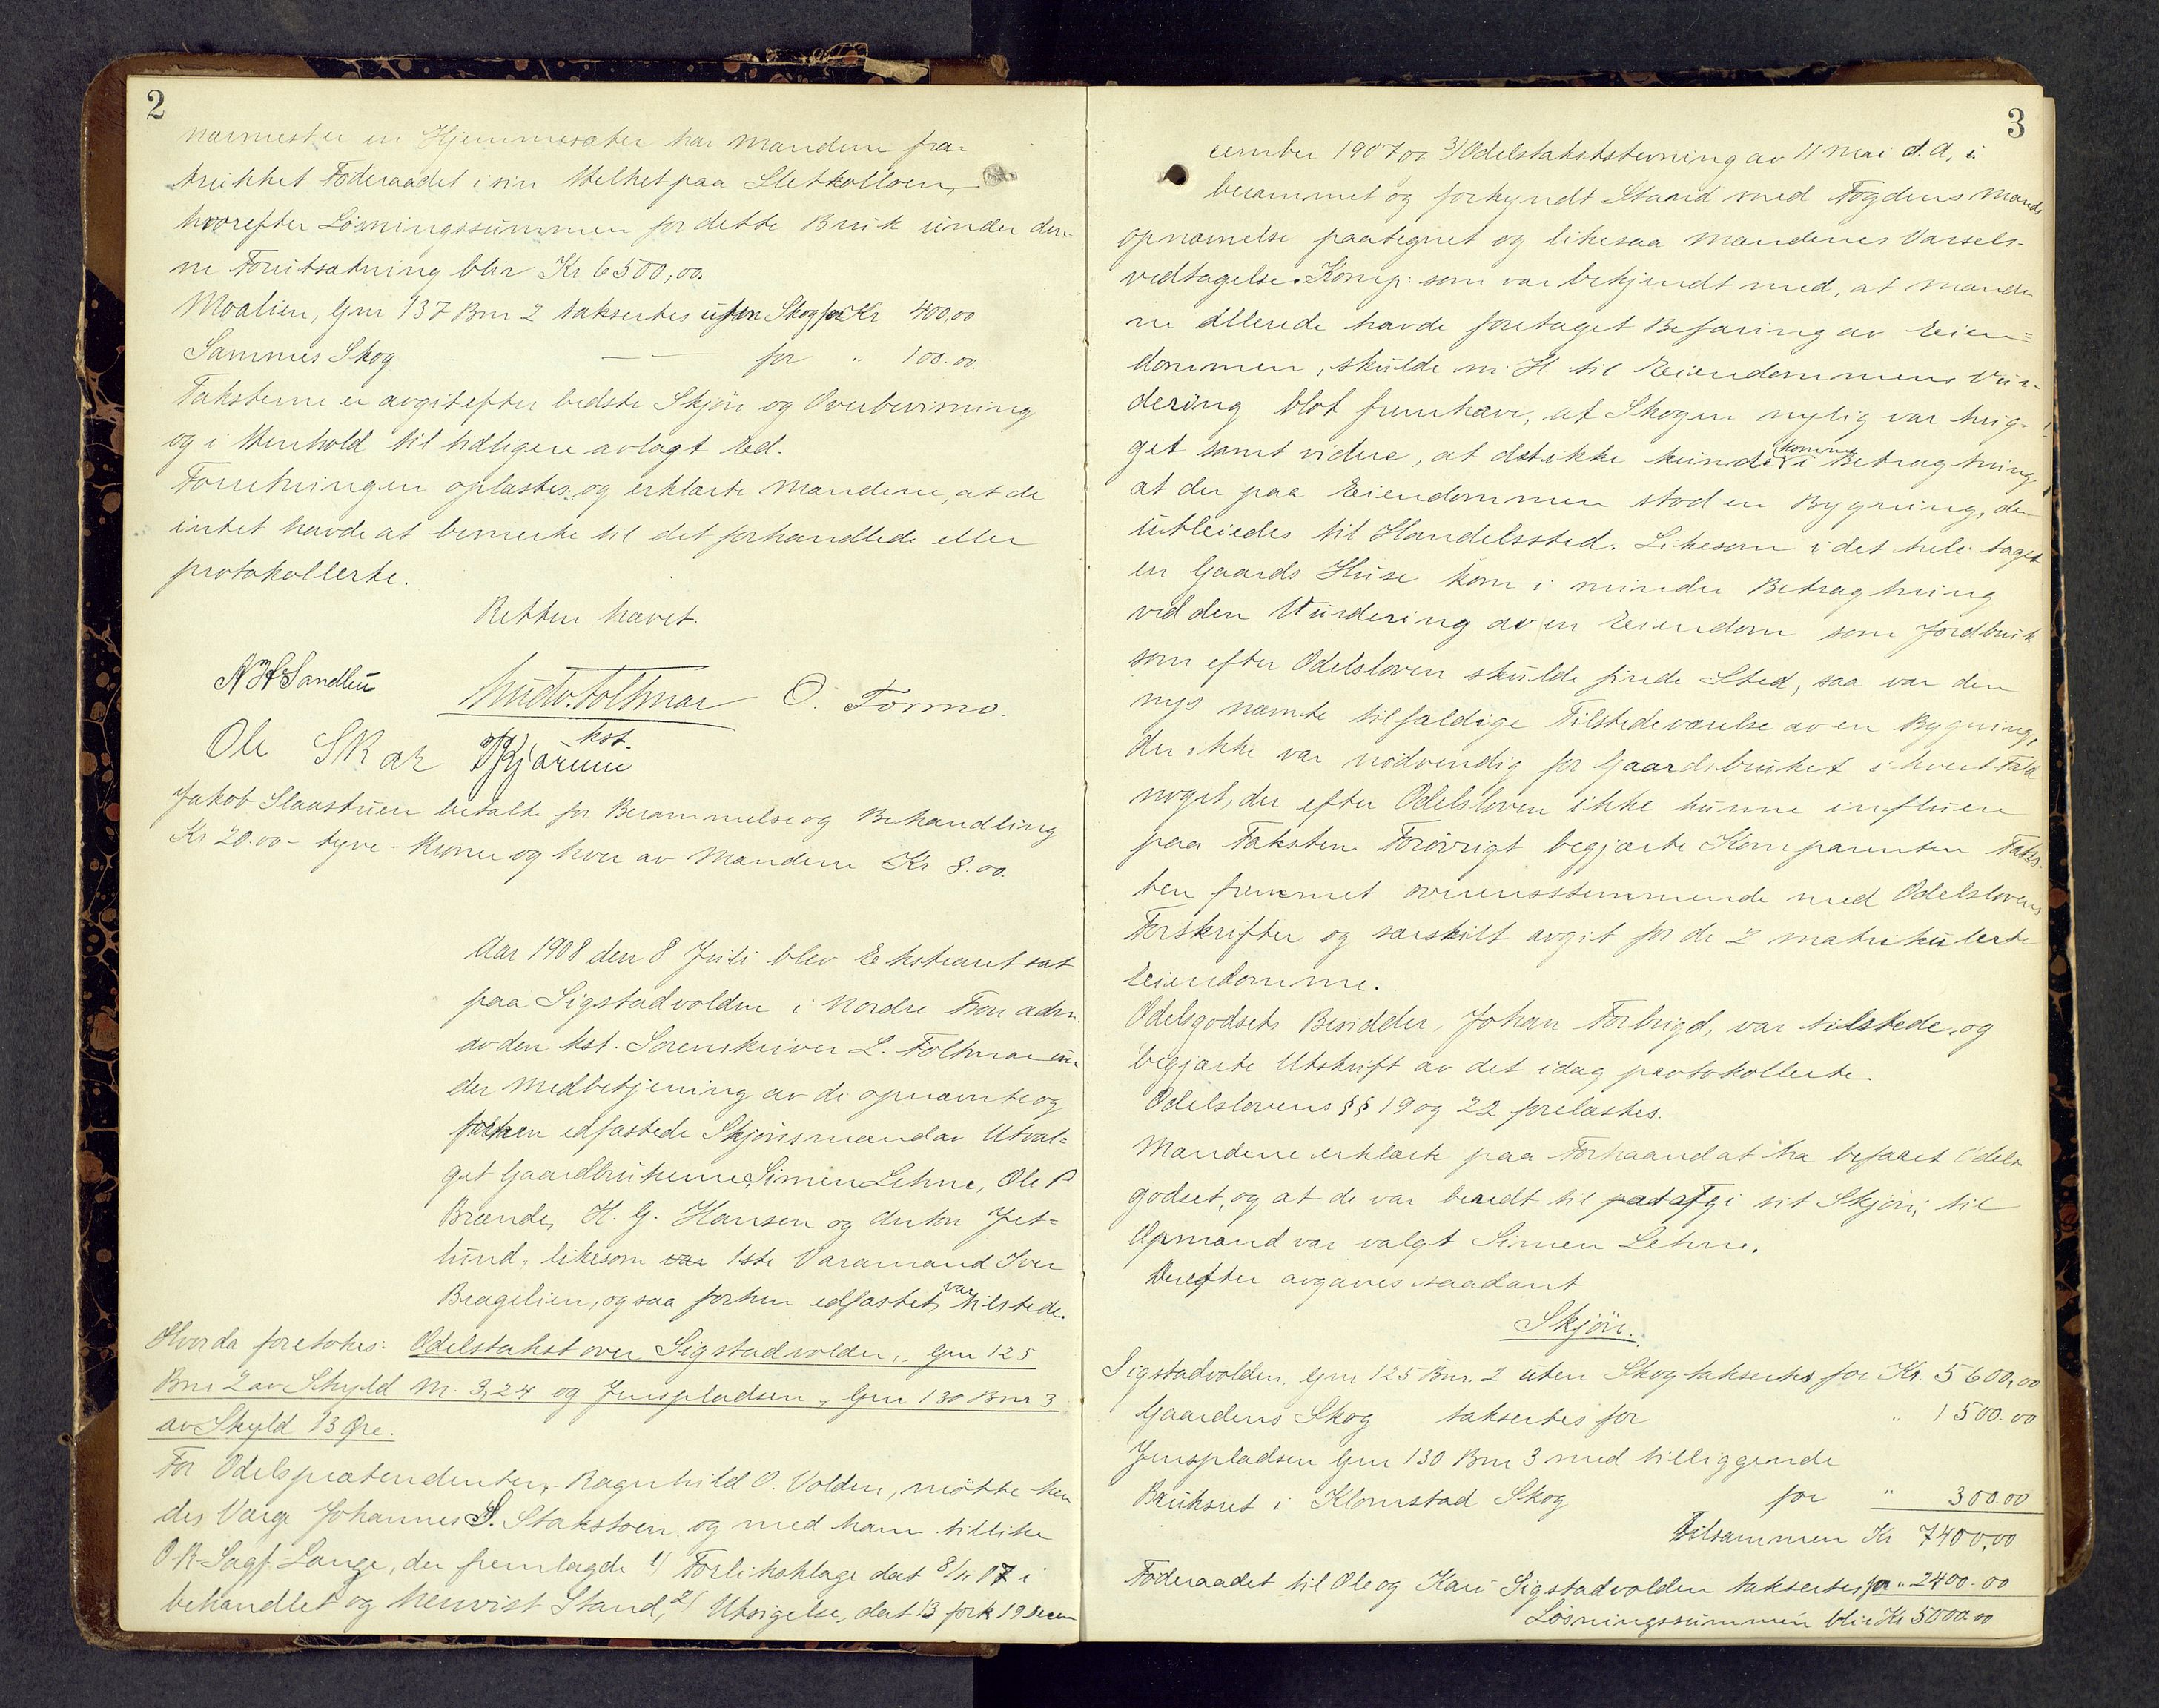 2
nærmester en Hjemmesæter har Mændene fra-
trukket Föderaadet i sin Helhet paa Sletkolloen,
hvorefter Løsningssummen for dette Bruk under den-
ne Forutsætning blir Kr 6500,00.
Moalien, Gnr 137 Bnr 2 taksertes uten Skog for Kr 400,00
Sammes Skog — — for " 100.00.
Taksterne er avgit efter bedste Skjön og Overbevisning
og i Henhold til tidligere avlagt Ed.
Forretningen oplæstes og erklærte Mændene, at de
intet havde at bemerke til det forhandlede eller
protokollerte.
Retten hævet.
N H Sandbu Ludv. Toltmar O. Formo.
kst.
Ole Skar Kjærum
Jakob Slaastuen betalte for Berammelse og Behandling
Kr 20.00 - tyve - Kroner og hver av Mændene Kr 8.00.
Aar 1908 den 8 Juli blev Ekstraret sat
paa Sigstadvolden i Nordre Fron adm.
av den kst. Sorenskriver L. Toltmar un-
der Medbetjening av de opnævnte og
forhen edfæstede Skjönsmænd av Utval-
get Gaardbrukerne Simen Lehne, Ole P
Brænde, H. G. Hansen og Anton Jet-
lund, likesom var 1ste Varamand Iver
Bragelien, ogsaa forhen edfæstet, var tilstede.
Hvorda foretokes: Odelstakst over Sigstadvolden, Gnr 125
Bnr 2 av Skyld M. 3,24 og Jenspladsen, Gnr 130 Bnr 3
av Skyld 13 Øre.
For Odelsprætendenten, Ragnhild O. Volden, mötte hen
des Værge Johannes S. Stakstoen og med ham tillike
O.R. Sagf. Lange, der fremlagde 1/ Forliksklage dat 8/11 07 i
behandlet og henvist Stand, 2/ Utsigelse, dat 13 fork 19 Decem
3
cember 1907 og 3/ Odelstakststevning av 11 Mai d. A, i
berammet og forkyndt Stand med Fogdens Mands
opnævnelse paategnet og likesaa Mændenes Varsels-
vedtagelse. Komp: som var bekjendt med, at Mænde
ne allerede havde foretaget Befaring av Eien-
dommen, skulde m. H. til Eiendommens Vur-
dering blot fremhæve, at Skogen nylig var hug-
get samt videre, at det ikke kunde komme i Betragtning,
at der paa Eiendommen stod en Bygning, der
utleiedes til Handelssted. Likesom i det hele taget
en Gaards Huse kom i mindre Betragtning
ved den Vurdering av en Eiendom som Jordbruk
som efter Odelsloven skulde finde Sted, saa var den
nys nævnte tilfældige Tilstedeværelse av en Bygning,
der ikke var nödvendig for Gaardsbruket i hvert Fald
noget, der efter Odelsloven ikke kunne influere
paa Taksten. Forövrigt begjærte Komparenten Taks-
ten fremmet overensstemmende med Odelslovens
Forskrifter og særskilt avgit for de 2 matrikulerte
Eiendomme.
Odelsgodsets Besidder, Johan Forbrigd, var tilstede, og
begjærte Utskrift av det idag protokollerte.
Odelslovens §§ 19 og 22 forelæstes.
Mændene erklærte paa Forhaand at ha befaret Odels-
godset, og at de var beredt til at afgi sit Skjön; til
Opmand var valgt Simen Lehne.
Derefter avgaves saadant
Skjön.
Sigstadvolden, Gnr 125 Bnr. 2 uten Skog taksertes for Kr. 5600,00
Gaardens Skog taksertes for " 1500.00
Jenspladsen Gnr 130 Bnr 3 med tilliggende
Bruksret i Klomstad Skog for " 300.00
Tilsammen Kr 7400,00
Föderaadet til Ole og Kari Sigstadvolden taksertes for " 2400.00
Løsningssummen blir Kr 5000.00